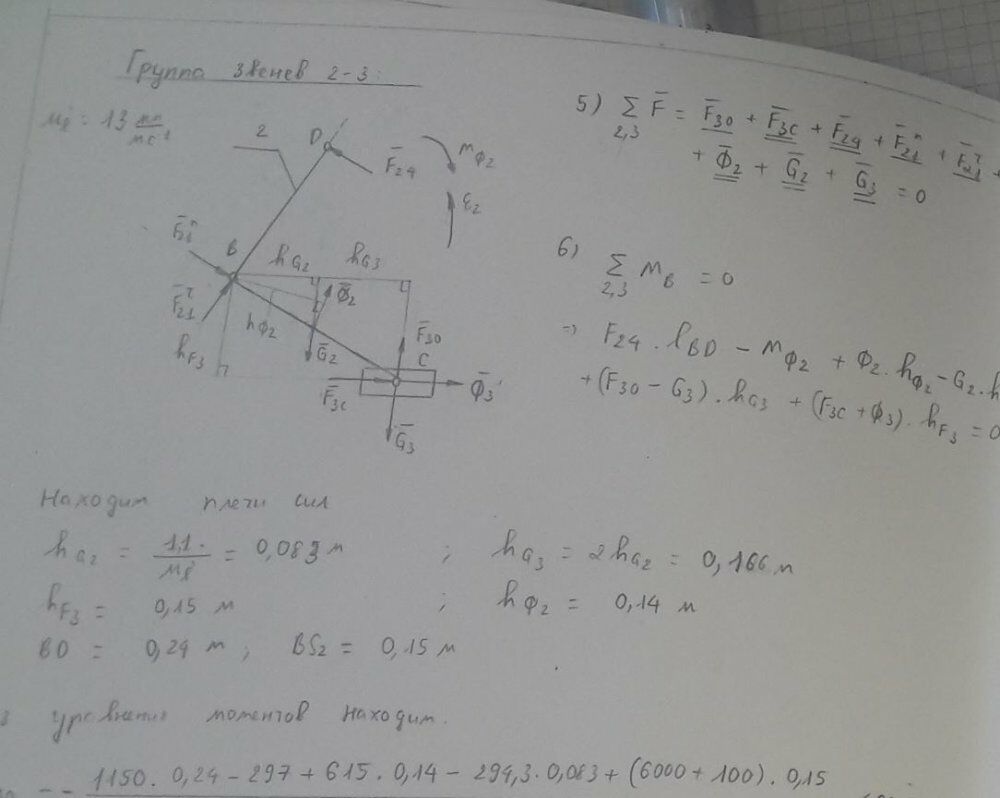 Группа звенев 2-3:
μℓ = 13 мм/мс⁻¹
2
D
F̄24
MФ2
ε2
F̄ⁿ21
B
hG2
hG3
F̄τ21
Φ̄2
hФ2
hF3
Ḡ2
F̄30
C
F̄3C
Φ̄3
Ḡ3
5) Σ2,3 F̄ = F̄30 + F̄3C + F̄24 + F̄ⁿ21 + F̄τ21 +
+ Φ̄2 + Ḡ2 + Ḡ3 = 0
6) Σ2,3 MB = 0
=> F24 · ℓBD − MФ2 + Φ2 · hФ2 − G2 · h
+ (F30 − G3) · hG3 + (F3C + Φ3) · hF3 = 0
Находим плечи сил
hG2 = 1,1 · / μℓ = 0,083 м ; hG3 = 2hG2 = 0,166 м
hF3 = 0,15 м ; hФ2 = 0,14 м
BD = 0,24 м ; BS2 = 0,15 м
уравнения моментов находим.
1150 · 0,24 − 297 + 615 · 0,14 − 294,3 · 0,083 + (6000 + 100) · 0,15